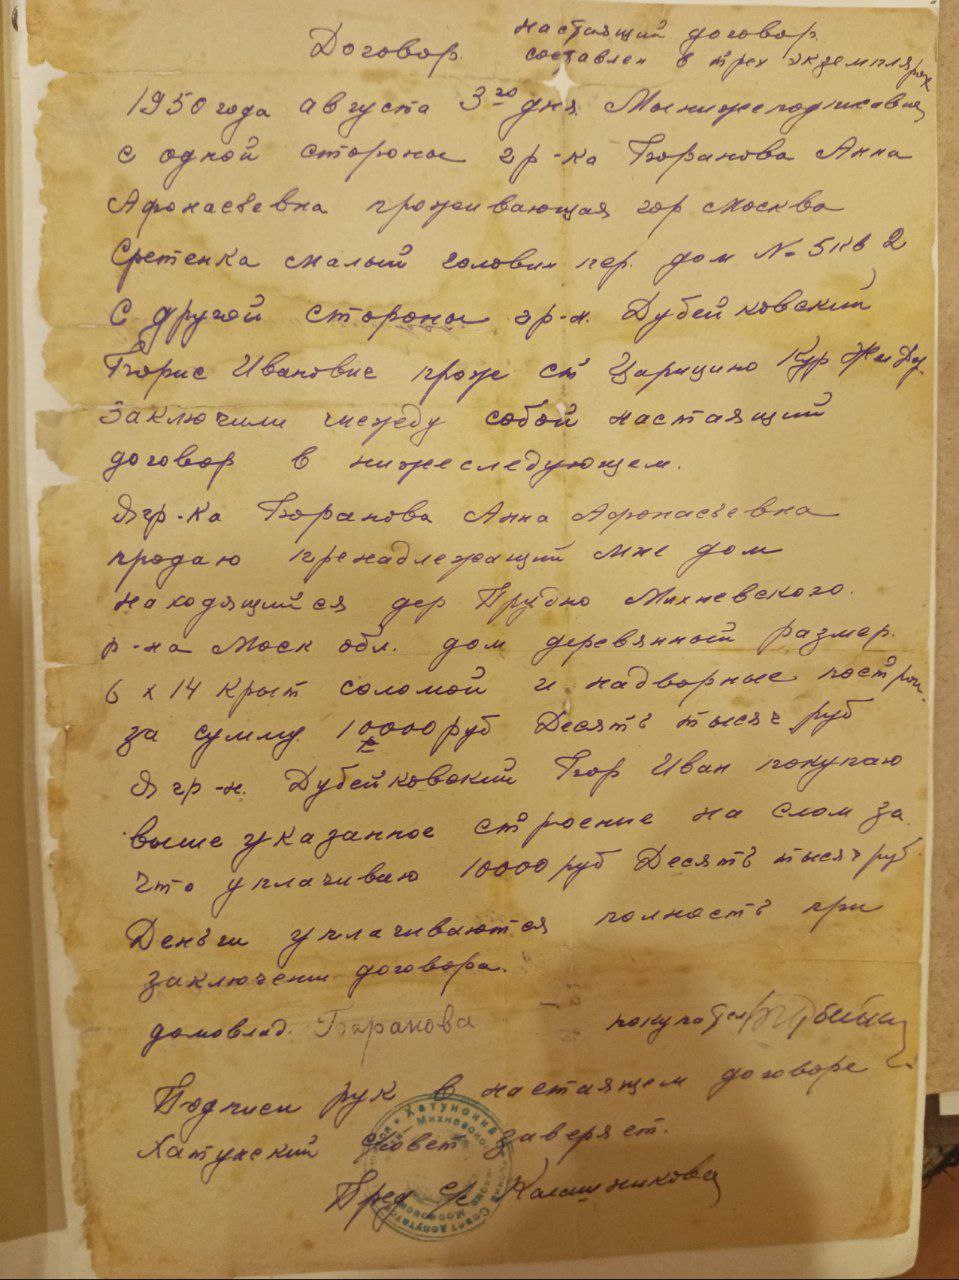 настоящий договор
Договор. составлен в трех экземплярах
1950 года августа 3го дня. Мы нижеподписавшиеся
с одной стороны гр-ка Баранова Анна
Афонасьевна проживающая гор Москва
Сретенка малый головин пер. дом № 5 кв 2
С другой стороны гр-н. Дубейковский
Борис Иванович прож ст Царицино Кур
заключили между собой настоящий
договор в нижеследующем.
Я гр-ка Баранова Анна Афонасьевна
продаю пренадлежащий мне дом
находящийся дер Прудно Михневского.
р-на Моск обл. дом деревянный размер.
6 х 14 крыт соломой и надворные построй.
за сумму 10000 руб Десять тысяч руб
Я гр-н. Дубейковский Бор Иван покупаю
выше указанное строение на слом за
что уплачиваю 10000 руб Десять тысяч руб
Деньги уплачиваются полность при
заключении договора.
домовлад. Баранова покупатель
Подписи рук в настоящем договоре
Хатунский совет заверяет.
Пред с/с Калашникова